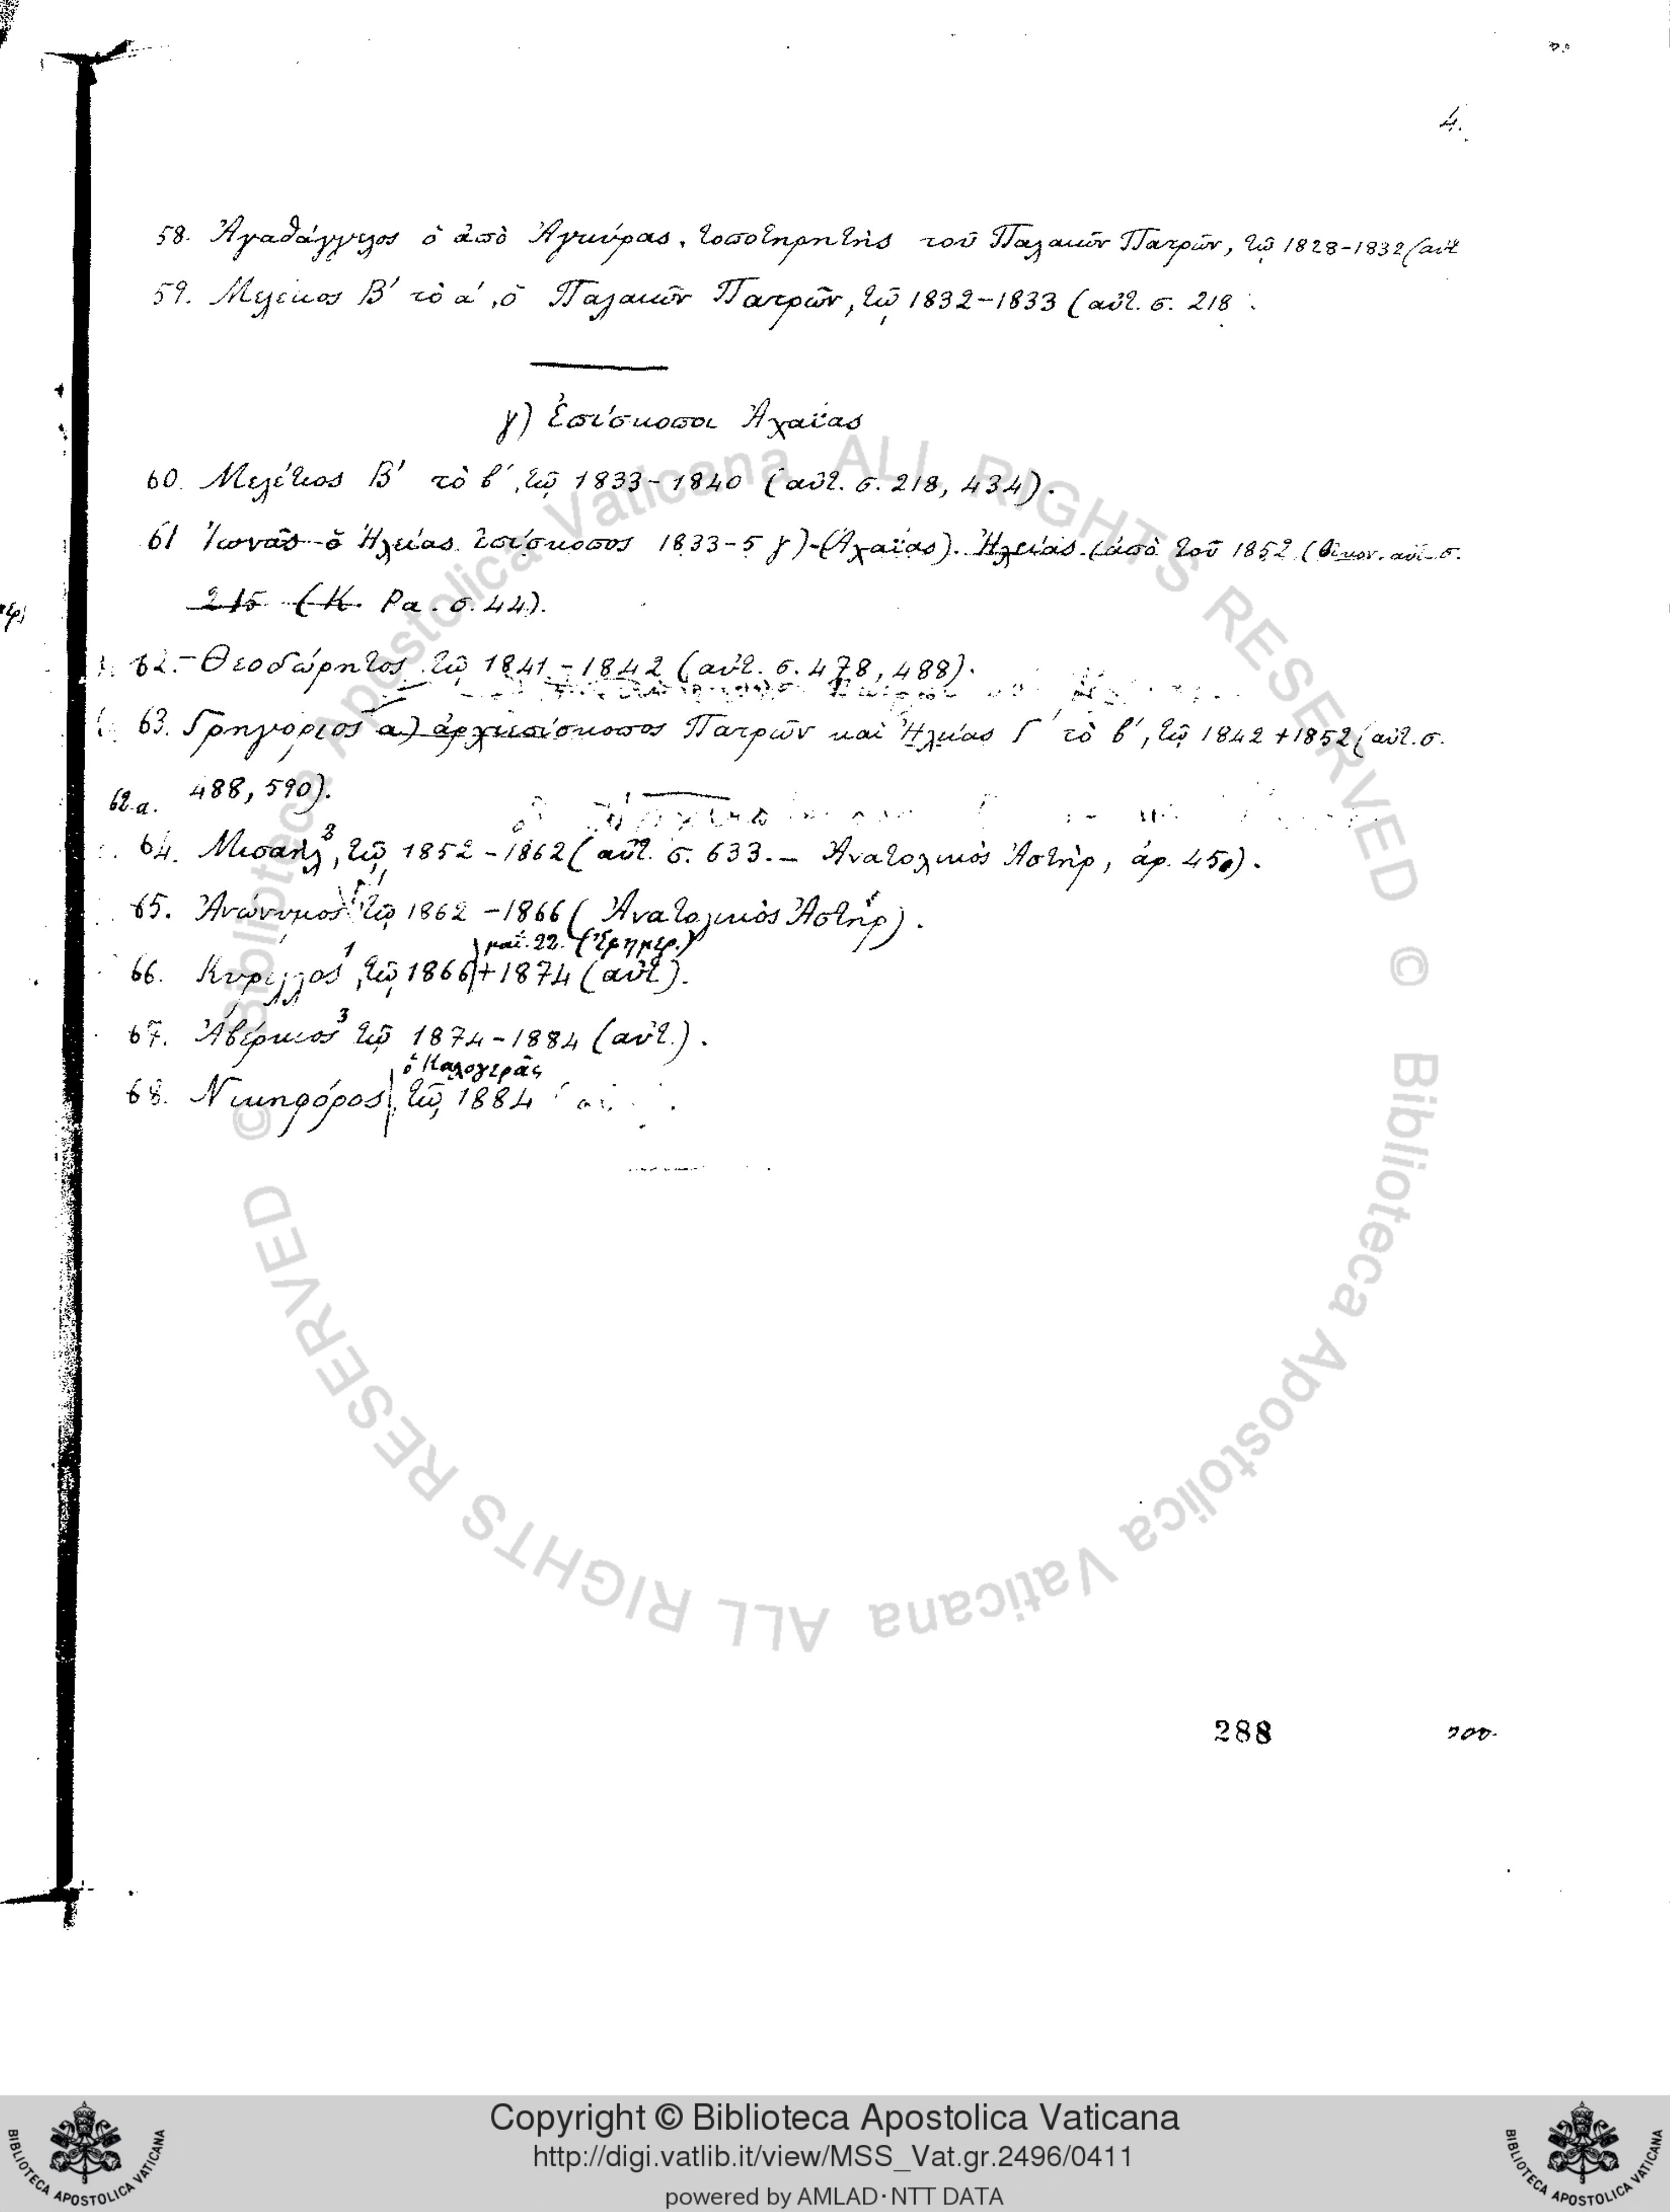 4.
58. Ἀγαθάγγελος ὁ ἀπὸ Ἀγκύρας, τοποτηρητὴς τοῦ Παλαιῶν Πατρῶν, τῷ 1828-1832 (αὐτ
59. Μελέτιος Β' τὸ α', ὁ Παλαιῶν Πατρῶν, τῷ 1832-1833 (αὐτ. σ. 218
γ) Ἐπίσκοποι Ἀχαΐας
60. Μελέτιος Β' τὸ β', τῷ 1833-1840 (αὐτ. σ. 218, 434).
61 Ἰωνᾶς ὁ Ἠλείας ἐπίσκοπος 1833-5 γ)-(Ἀχαΐας). Ἠλείας (ἀπὸ τοῦ 1852 (Οἰκον. αὐτ. σ.
215 (Κ. Ρα. σ. 44).
62.- Θεοδώρητος τῷ 1841-1842 (αὐτ. σ. 478, 488).
63. Γρηγόριος α) ἀρχιεπίσκοπος Πατρῶν καὶ Ἠλείας Γ' τὸ β', τῷ 1842 +1852 (αὐτ. σ.
488, 590).
62.a.
64. Μισαὴλ, τῷ 1852-1862 (αὐτ. σ. 633.- Ἀνατολικὸς Ἀστὴρ, ἀρ. 450).
65. Ἀνώνυμος τῷ 1862-1866 (Ἀνατολικὸς Ἀστήρ).
μαΐ. 22. (Ἐφημερ.)
66. Κύριλλος 1, τῷ 1866 + 1874 (αὐτ).
67. Ἀβέρκιος 3 τῷ 1874-1884 (αὐτ.).
ὁ Καλογερᾶς
68. Νικηφόρος, τῷ 1884
288 200.
© Biblioteca Apostolica Vaticana ALL RIGHTS RESERVED
© Biblioteca Apostolica Vaticana ALL RIGHTS RESERVED
BIBLIOTECA APOSTOLICA VATICANA
Copyright © Biblioteca Apostolica Vaticana
http://digi.vatlib.it/view/MSS_Vat.gr.2496/0411
powered by AMLAD·NTT DATA
BIBLIOTECA APOSTOLICA VATICANA